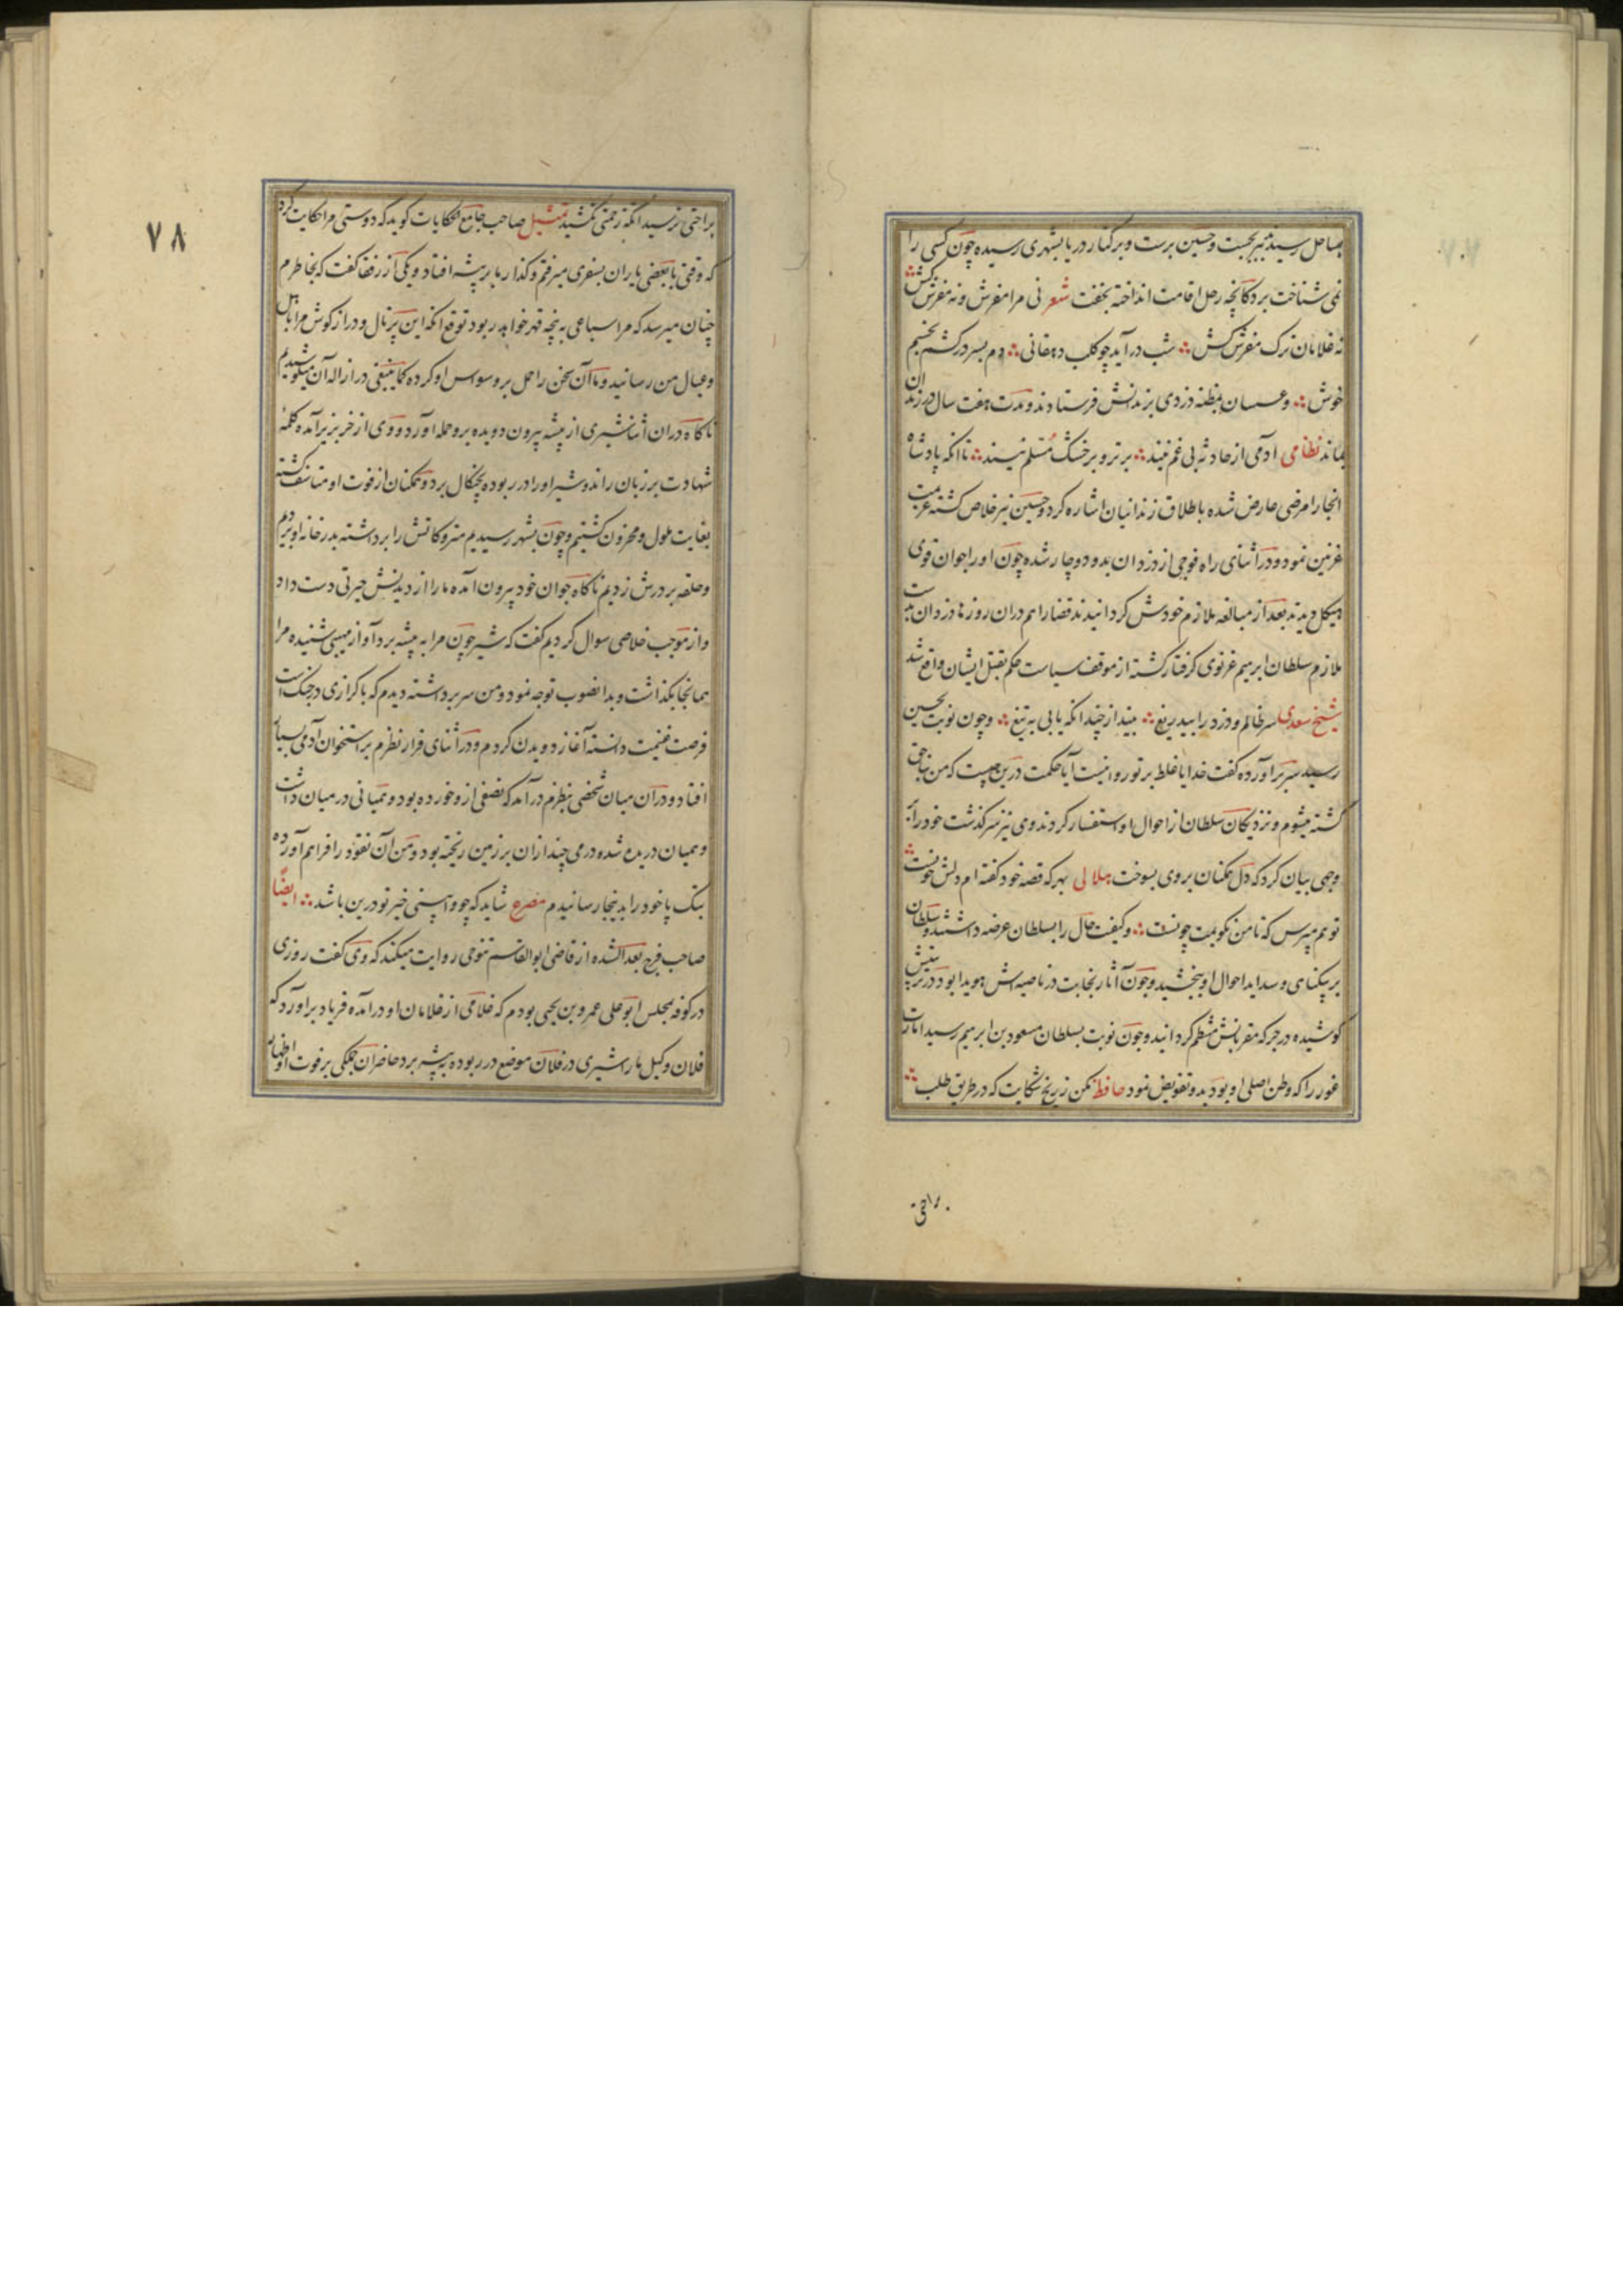 بساحل رسید ببر بجست و حسین برست و بر کنار دریا بشهری رسیده چون کسی را
نمی شناخت بر دکانچه رحل اقامت انداخته بخفت شعر نی مرا مفرش و نه مفرش کش
نه غلامان ترک مفرش کش شب درآید چو کلب دهقانی دم بسر درکشم بخسبم
خوش و عسسان بمظنه دزدی بزندانش فرستادند و مدت هفت سال در زندان
بماند نظامی آدمی از حادثه بی غم نیند بر تر و بر خشک مسلم نیند تا آنکه پادشاه
انجا را مرضی عارض شده باطلاق زندانیان اشاره کرد و حسین نیز خلاص گشته عزیمت
غزنین نمود و در اثنای راه فوجی از دزدان بدو دوچار شده چون او را جوان قوی
هیکل دیدند بعد از مبالغه ملازم خودش گردانیدند قضا را هم دران روزها دزدان بدست
ملازم سلطان ابرهیم غزنوی گرفتار گشته از موقف سیاست حکم بقتل ایشان واقع شد
شیخ سعدی سر ظالم و دزد را بیدریغ بینداز چندانکه یابی به تیغ و چون نوبت بحسین
رسید سر برآورده گفت خدایا غلط بر تو روا نیست آیا حکمت درین چیست که من بناحق
کشته میشوم و نزدیکان سلطان از احوال او استفسار کردند و وی نیز سرگذشت خود را به
وجهی بیان کرد که دل همکنان بر وی بسوخت هلالی بهر که قصه خود گفته ام دلش خونست
تو هم مپرس که تا من نگویمت چونست و کیفیت حال را بسلطان عرضه داشتند و سلطان
بر بیکناهی و سداید احوال او ببخشید و چون آثار نجابت در ناصیه اش هویدا بود در تربیتش
کوشیده در جرکه مقربانش منتظم گردانید و چون نوبت بسلطان مسعود بن ابرهیم رسید امارت
غور را که وطن اصلی او بود بدو تفویض نمود حافظ مکن ز رنج شکایت که در طریق طلب
براحتی
۷۸
براحتی نرسید آنکه زحمتی نکشید تمثیل صاحب جامع الحکایات گوید که دوستی مرا حکایت کرد
که وقتی با بعضی یاران بسفری میرفتم و گذار ما بر بیشه افتاد و یکی از رفقا گفت که بخاطرم
چنان میرسد که مرا سباعی به پنجه قهر خواهد ربود توقع آنکه این پرتال و درازکوش مرا باهل
و عیال من رسانید و ما آن سخن را حمل بر وسواس او کرده کما ینبغی در ازاله آن میکوشیدیم
ناکاه دران اثنا شیری از بیشه بیرون دویده برو حمله آورد و وی از خر بزیر آمده کلمه
شهادت بر زبان راند و شیر او را در ربوده بچنکال برد و همکنان از فوت او متاسف گشته
بغایت ملول و محزون گشتیم و چون بشهر رسیدیم متروکاتش را برداشته بدر خانه او بردیم
و حلقه بر درش زدیم ناکاه جوان خود بیرون آمده ما را از دیدنش حیرتی دست داد
و از موجب خلاصی سوال کردیم گفت که شیر چون مرا به بیشه برد آواز مهیبی شنیده مرا
همانجا بگذاشت و بدانصوب توجه نمود و من سر برداشته دیدم که با کرازی در جنک است
فرصت غنیمت دانسته آغاز دویدن کردم و در اثنای فرار نظرم بر استخوان آدمی بسیار
افتاد و دران میان شخصی بنظرم درآمد که نصفی ازو خورده بود و همیانی در میان داشت
و همیان دریده شده درمی چند ازان بر زمین ریخته بود و من آن نقود را فراهم آورده
بتک پا خود را بدینجا رسانیدم مصرع شاید که چو وابینی خیر تو درین باشد ایضا
صاحب فرج بعد الشده از قاضی ابوالقاسم تنوخی روایت میکند که وی گفت روزی
در کوفه بمجلس ابوعلی عمرو بن یحیی بودم که غلامی از غلامان او درآمده فریاد برآورد که
فلان وکیل ما را شیری در فلان موضع در ربوده به بیشه برد حاضران جملگی بر فوت او اظهار